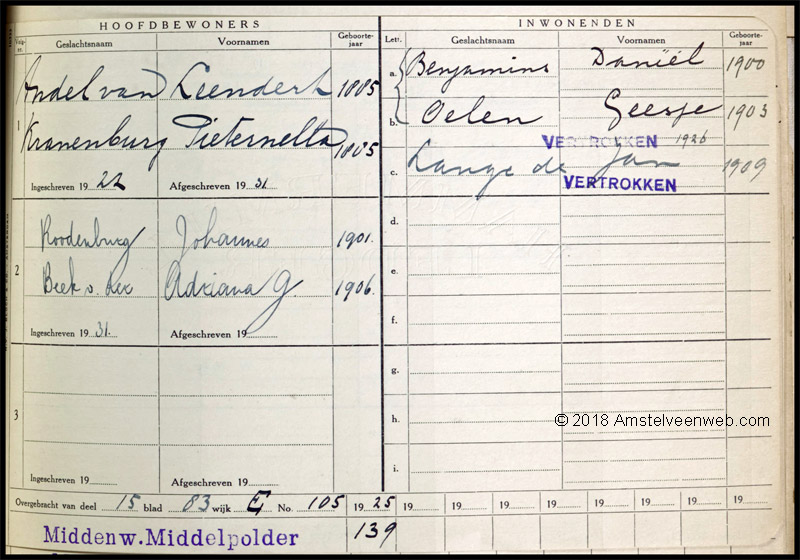 HOOFDBEWONERS
Volg-nr. Geslachtsnaam Voornamen Geboorte-jaar
Andel van Leendert 1885
1
Kranenburg Pieternella 1885
Ingeschreven 19 22 Afgeschreven 19 31.
Roodenburg Johannes 1901.
2
Beek v. der Adriana G. 1906.
Ingeschreven 19 31. Afgeschreven 19
3
Ingeschreven 19 Afgeschreven 19
INWONENDEN
Lett. Geslachtsnaam Voornamen Geboorte-jaar
a. Benjamins Daniël 1900
b. Oelen Geesje 1903
VERTROKKEN 1926
c. Lange de Jan 1909
VERTROKKEN
d.
e.
f.
g.
h.
© 2018 Amstelveenweb.com
i.
Overgebracht van deel 15 blad 83 wijk E No. 105 19 25 19 19 19 19 19 19 19 19
Middenw. Middelpolder 139